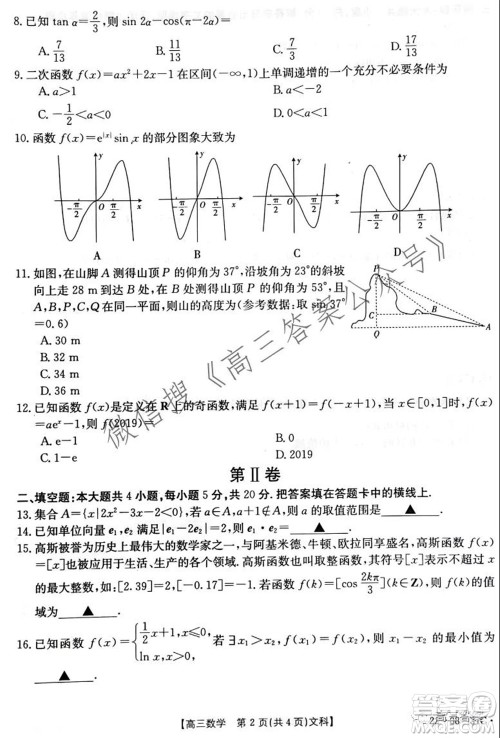 8. 已知 tan α=2/3，则 sin 2α−cos(π−2α)=
A. 7/13 B. 11/13 C. 7/3 D. 17/13
9. 二次函数 f(x)=ax²+2x−1 在区间(−∞,1)上单调递增的一个充分不必要条件为
A. a>1 B. a<−2
C. −1/2<a<0 D. 0<a<1
10. 函数 f(x)=e^|x| sin x 的部分图象大致为
y y y y
−π/2 O π/2 x −π/2 O π/2 x −π/2 O π/2 x −π/2 O π/2 x
A B C D
11. 如图，在山脚 A 测得山顶 P 的仰角为 37°，沿坡角为 23°的斜坡
向上走 28 m 到达 B 处，在 B 处测得山顶 P 的仰角为 53°，且
A，B，P，Q 在同一平面，则山的高度为(参考数据：取 sin 37°
=0.6)
A. 30 m
B. 32 m
C. 34 m
D. 36 m
P
C B
Q A
12. 已知函数 f(x)是定义在 R 上的奇函数，满足 f(x+1)=f(−x+1)，当 x∈[0,1]时，f(x)
=aeˣ−1，则 f(2019)=
A. e−1 B. 0
C. 1−e D. 2019
第Ⅱ卷
二、填空题：本大题共 4 小题，每小题 5 分，共 20 分. 把答案填在答题卡中的横线上.
13. 集合 A={x|2x²−3x−2<0}，B={x|x>a}，若 A∩B=∅，则 a 的取值范围是 ▲ .
14. 已知单位向量 e₁，e₂ 满足|e₁−2e₂|=2，则 e₁·e₂= ▲ .
15. 高斯被誉为历史上最伟大的数学家之一，与阿基米德、牛顿、欧拉同享盛名，高斯函数 f(x)
=[x]也被应用于生活、生产的各个领域. 高斯函数 f(x)=[x]也叫取整函数，其符号[x]表示不超过 x
的最大整数，如：[2.39]=2，[−0.17]=−1. 若函数 f(k)=[cos 2kπ/3](k∈Z)，则 f(k)的值
域为 ▲ .
16. 已知函数 f(x)={1/2x+1,x≤0 ln x,x>0}，若∃x₁>x₂，f(x₁)=f(x₂)，则 x₁−x₂ 的最小值为
▲ .
【高三数学 第 2 页(共 4 页)文科】
微信搜《高三答案公众号》